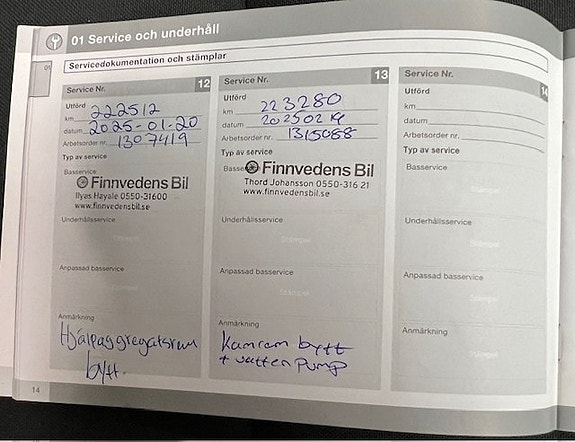 01 Service och underhåll
Servicedokumentation och stämplar
Service Nr. 12
Utförd
km 222512
datum 2025-01-20
Arbetsorder nr. 1307419
Typ av service
Basservice
Finnvedens Bil
Ilyas Hayale 0550-31600
www.finnvedensbil.se
Underhållsservice
Stämpel
Anpassad basservice
Stämpel
Anmärkning
Hjälpaggregatsrem
bytt.
Service Nr. 13
Utförd
km 223280
datum 20250214
Arbetsorder nr. 1315088
Typ av service
Basse
Finnvedens Bil
Thord Johansson 0550-316 21
www.finnvedensbil.se
Underhållsservice
Stämpel
Anpassad basservice
Stämpel
Anmärkning
Kamrem bytt
+ vattenpump
Service Nr. 14
Utförd
km
datum
Arbetsorder nr.
Typ av service
Basservice
Underhållsservice
Stämpel
Anpassad basservice
Stämpel
Anmärkning
14